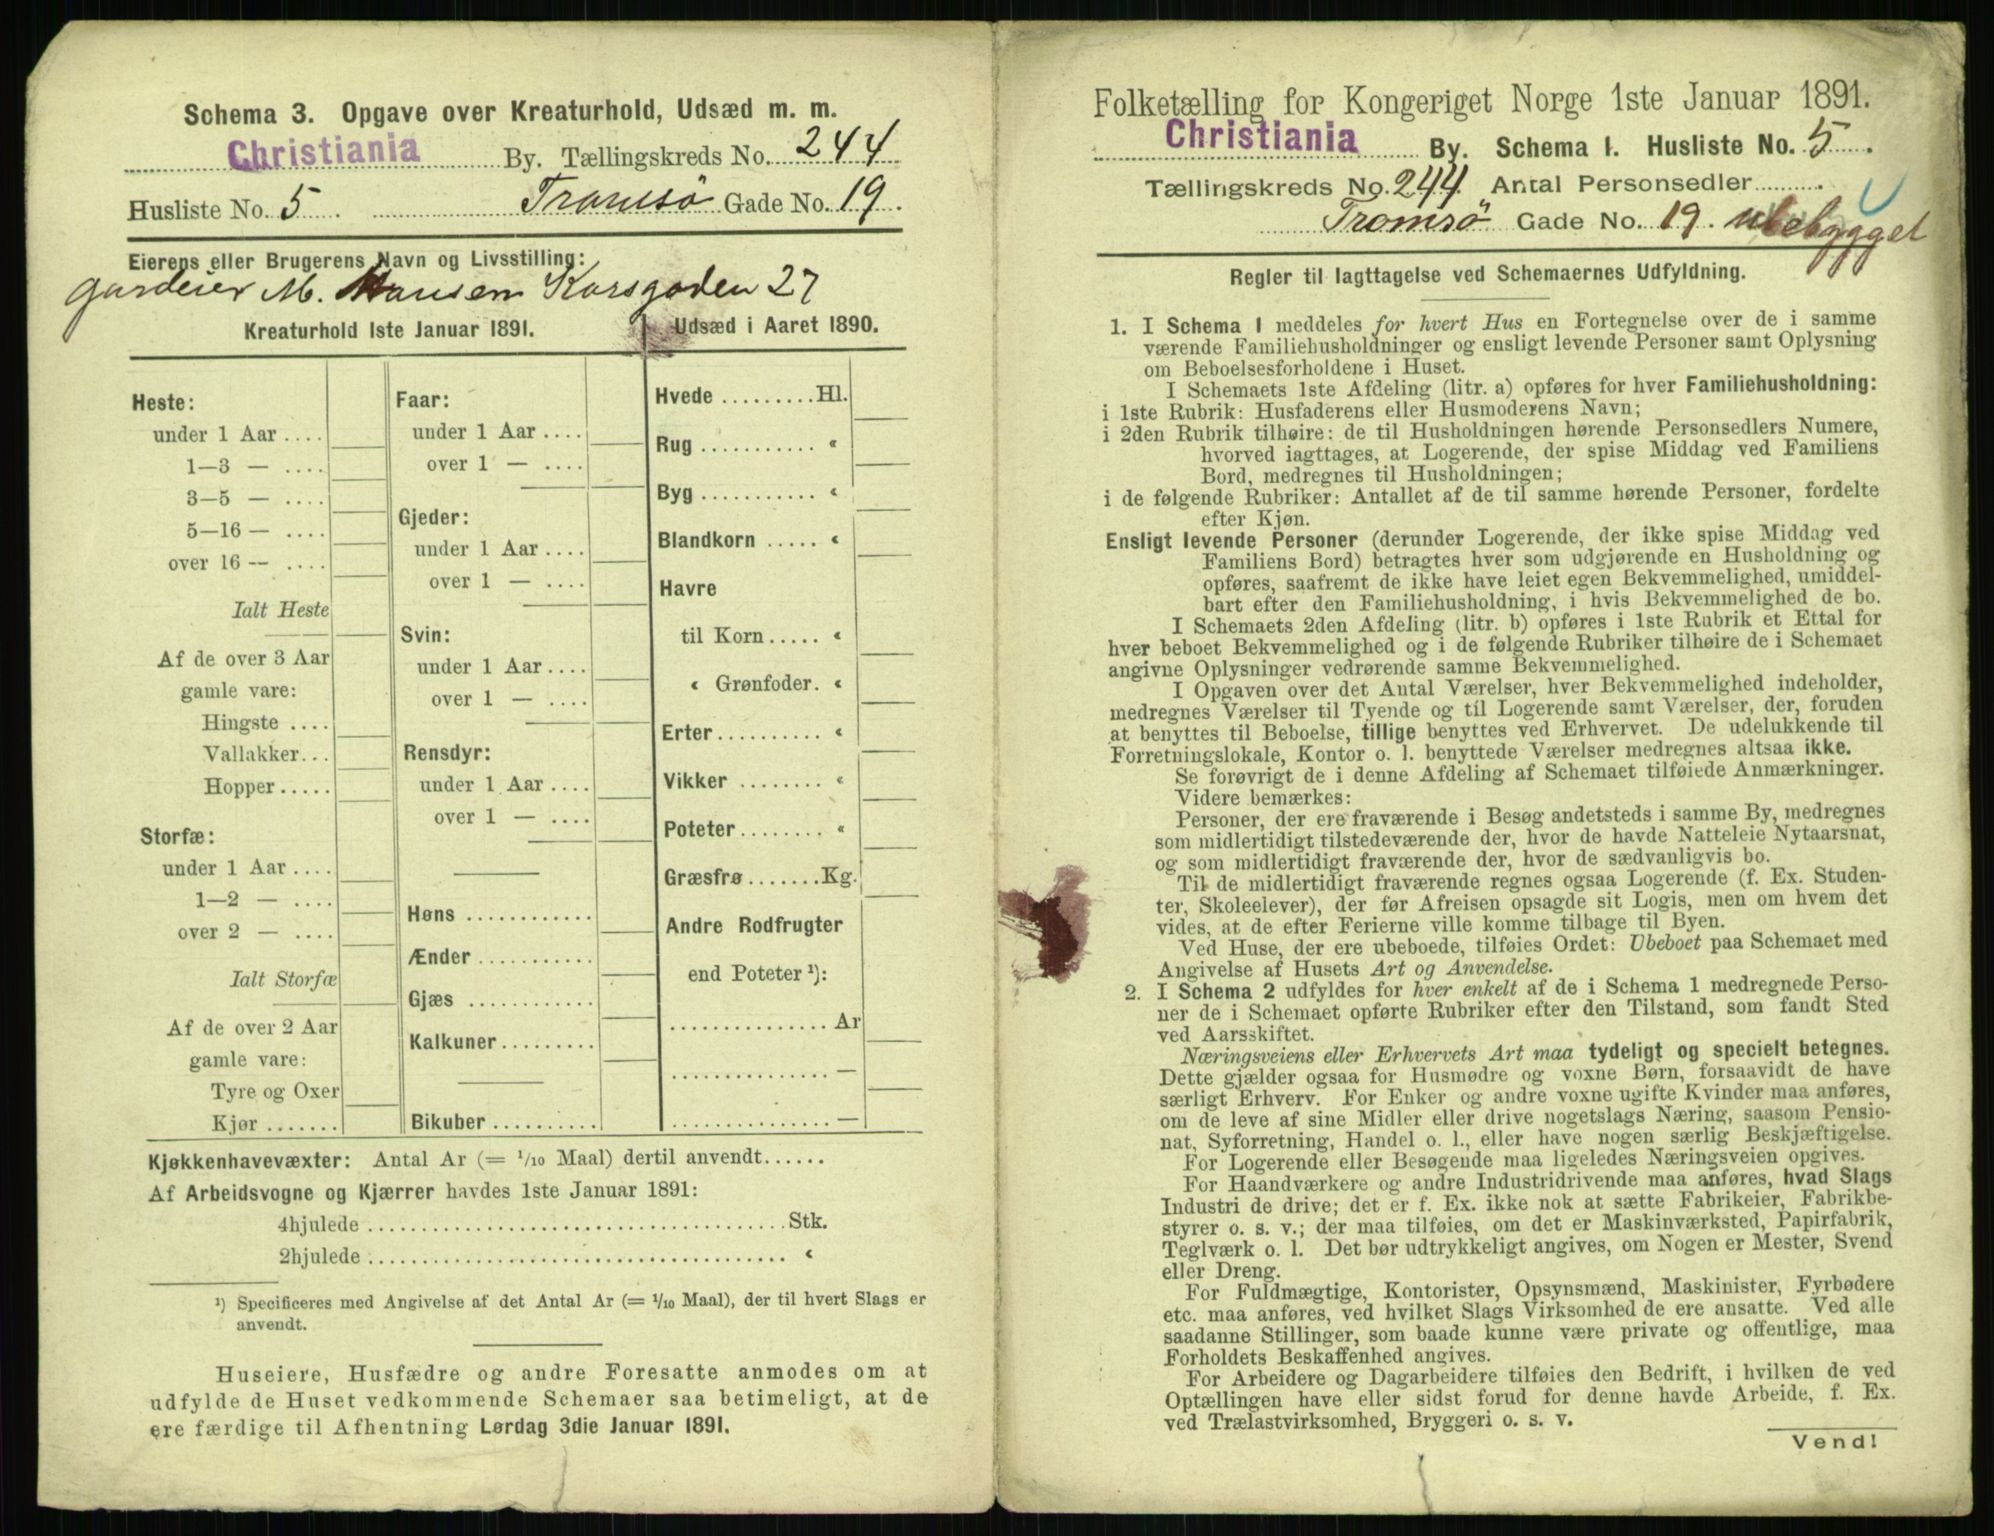 Schema 3. Opgave over Kreaturhold, Udsæd m. m.
Christiania By. Tællingskreds No. 244
Husliste No. 5. Tromsö Gade No. 19.
Eierens eller Brugerens Navn og Livsstilling:
Gardeier M. Hansen Korsgaden 27
Kreaturhold 1ste Januar 1891.
Heste:
under 1 Aar ....
1—3 — ....
3—5 — ....
5—16 — ....
over 16 — ....
Ialt Heste
Af de over 3 Aar
gamle vare:
Hingste ....
Vallakker...
Hopper .....
Storfæ:
under 1 Aar ....
1—2 — ....
over 2 — ....
Ialt Storfæ
Af de over 2 Aar
gamle vare:
Tyre og Oxer
Kjør .......
Faar:
under 1 Aar ....
over 1 — ....
Gjeder:
under 1 Aar ....
over 1 — ....
Svin:
under 1 Aar ....
over 1 — ....
Rensdyr:
under 1 Aar ....
over 1 — ....
Høns ............
Ænder ...........
Gjæs ............
Kalkuner .........
Bikuber ..........
Udsæd i Aaret 1890.
Hvede .........Hl.
Rug ........... «
Byg ........... «
Blandkorn ..... «
Havre
til Korn ..... «
« Grønfoder. «
Erter .......... «
Vikker ........ «
Poteter ........ «
Græsfrø .......Kg.
Andre Rodfrugter
end Poteter ¹):
............... Ar
............... —
............... —
Kjøkkenhavevæxter: Antal Ar (= 1/10 Maal) dertil anvendt......
Af Arbeidsvogne og Kjærrer havdes 1ste Januar 1891:
4hjulede ........................................ Stk.
2hjulede ........................................ «
¹) Specificeres med Angivelse af det Antal Ar (= 1/10 Maal), der til hvert Slags er
anvendt.
Huseiere, Husfædre og andre Foresatte anmodes om at
udfylde de Huset vedkommende Schemaer saa betimeligt, at de
ere færdige til Afhentning Lørdag 3die Januar 1891.
Folketælling for Kongeriget Norge 1ste Januar 1891.
Christiania By. Schema 1. Husliste No. 5.
Tællingskreds No. 244. Antal Personsedler .........
Tromsö Gade No. 19. ubebygget
Regler til Iagttagelse ved Schemaernes Udfyldning.
1. I Schema 1 meddeles for hvert Hus en Fortegnelse over de i samme
værende Familiehusholdninger og ensligt levende Personer samt Oplysning
om Beboelsesforholdene i Huset.
I Schemaets 1ste Afdeling (litr. a) opføres for hver Familiehusholdning:
i 1ste Rubrik: Husfaderens eller Husmoderens Navn;
i 2den Rubrik tilhøire: de til Husholdningen hørende Personsedlers Numere,
hvorved iagttages, at Logerende, der spise Middag ved Familiens
Bord, medregnes til Husholdningen;
i de følgende Rubriker: Antallet af de til samme hørende Personer, fordelte
efter Kjøn.
Ensligt levende Personer (derunder Logerende, der ikke spise Middag ved
Familiens Bord) betragtes hver som udgjørende en Husholdning og
opføres, saafremt de ikke have leiet egen Bekvemmelighed, umiddel-
bart efter den Familiehusholdning, i hvis Bekvemmelighed de bo.
I Schemaets 2den Afdeling (litr. b) opføres i 1ste Rubrik et Ettal for
hver beboet Bekvemmelighed og i de følgende Rubriker tilhøire de i Schemaet
angivne Oplysninger vedrørende samme Bekvemmelighed.
I Opgaven over det Antal Værelser, hver Bekvemmelighed indeholder,
medregnes Værelser til Tyende og til Logerende samt Værelser, der, foruden
at benyttes til Beboelse, tillige benyttes ved Erhvervet. De udelukkende til
Forretningslokale, Kontor o. l. benyttede Værelser medregnes altsaa ikke.
Se forøvrigt de i denne Afdeling af Schemaet tilføiede Anmærkninger.
Videre bemærkes:
Personer, der ere fraværende i Besøg andetsteds i samme By, medregnes
som midlertidigt tilstedeværende der, hvor de havde Natteleie Nytaarsnat,
og som midlertidigt fraværende der, hvor de sædvanligvis bo.
Til de midlertidigt fraværende regnes ogsaa Logerende (f. Ex. Studen-
ter, Skoleelever), der før Afreisen opsagde sit Logis, men om hvem det
vides, at de efter Ferierne ville komme tilbage til Byen.
Ved Huse, der ere ubeboede, tilføies Ordet: Ubeboet paa Schemaet med
Angivelse af Husets Art og Anvendelse.
2. I Schema 2 udfyldes for hver enkelt af de i Schema 1 medregnede Perso-
ner de i Schemaet opførte Rubriker efter den Tilstand, som fandt Sted
ved Aarsskiftet.
Næringsveiens eller Erhvervets Art maa tydeligt og specielt betegnes.
Dette gjælder ogsaa for Husmødre og voxne Børn, forsaavidt de have
særligt Erhverv. For Enker og andre voxne ugifte Kvinder maa anføres,
om de leve af sine Midler eller drive nogetslags Næring, saasom Pensio-
nat, Syforretning, Handel o. l., eller have nogen særlig Beskjæftigelse.
For Logerende eller Besøgende maa ligeledes Næringsveien opgives.
For Haandværkere og andre Industridrivende maa anføres, hvad Slags
Industri de drive; det er f. Ex. ikke nok at sætte Fabrikeier, Fabrikbe-
styrer o. s. v.; der maa tilføies, om det er Maskinværksted, Papirfabrik,
Teglværk o. l. Det bør udtrykkeligt angives, om Nogen er Mester, Svend
eller Dreng.
For Fuldmægtige, Kontorister, Opsynsmænd, Maskinister, Fyrbødere
etc. maa anføres, ved hvilket Slags Virksomhed de ere ansatte. Ved alle
saadanne Stillinger, som baade kunne være private og offentlige, maa
Forholdets Beskaffenhed angives.
For Arbeidere og Dagarbeidere tilføies den Bedrift, i hvilken de ved
Optællingen have eller sidst forud for denne havde Arbeide, f. Ex.
ved Trælastvirksomhed, Bryggeri o. s. v.
Vend!